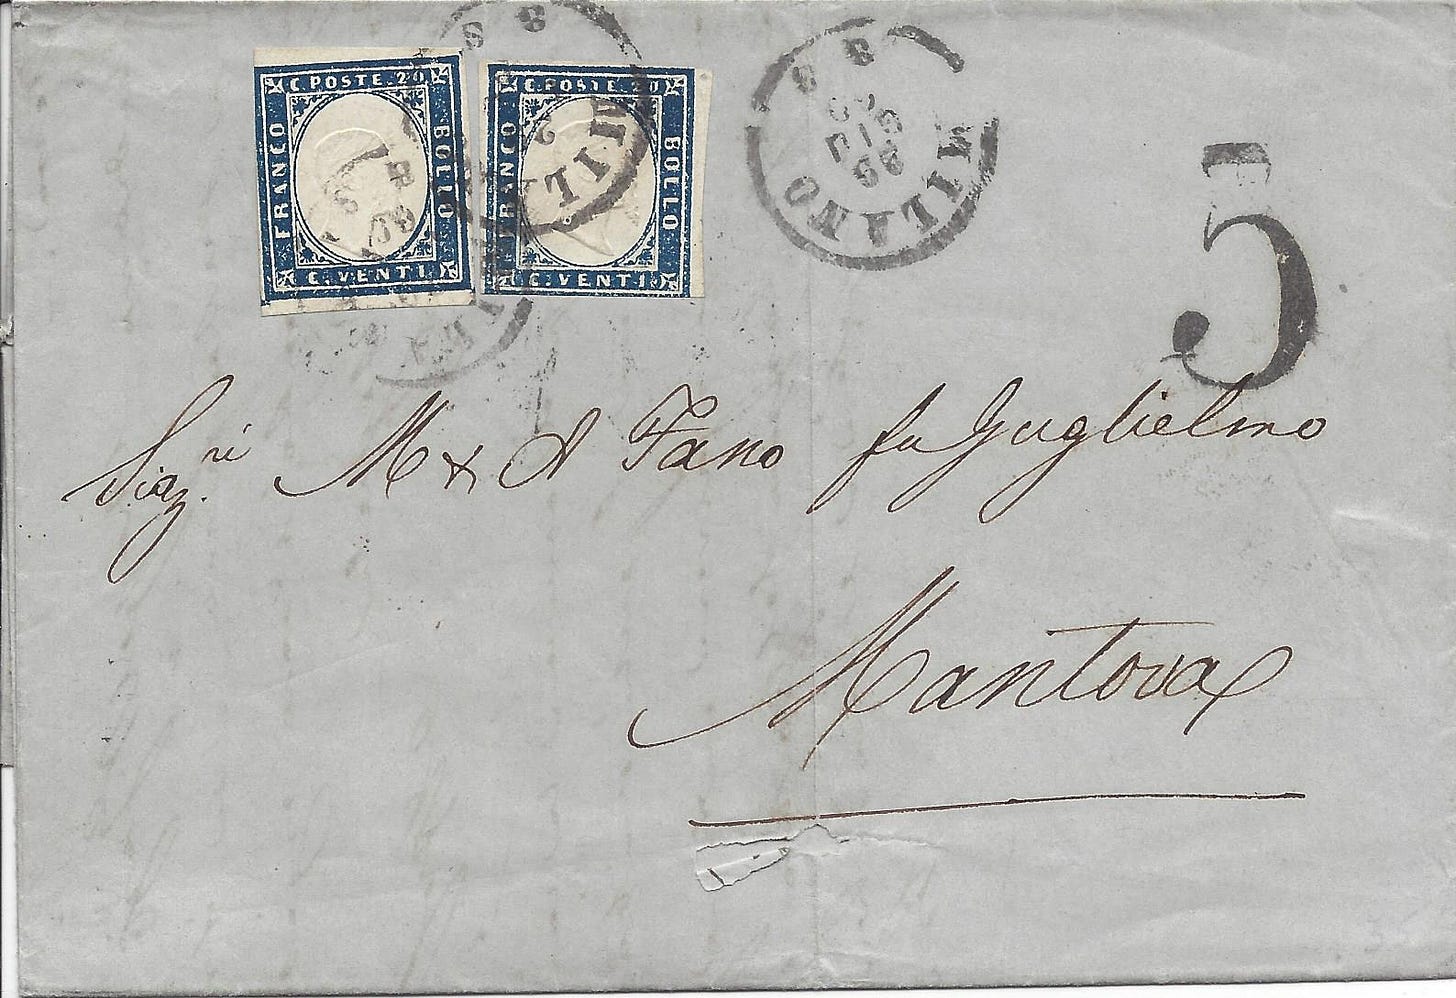 C. POSTE. 20
FRANCO
BOLLO
C. VENTI.
C. POSTE. 20
FRANCO
BOLLO
C. VENTI.
MILANO
GIU
5
Sig.ri M & A Fano fu Guglielmo
Mantova